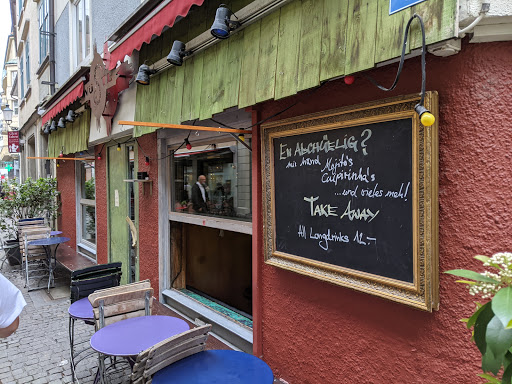 En Abchüelig?
Mojito's
Caipirinha's
...und vieles meh!
Take Away
All Longdrinks 12.-